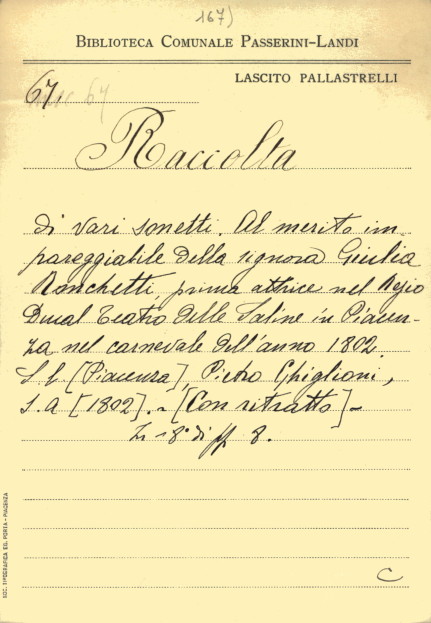 167)
BIBLIOTECA COMUNALE PASSERINI-LANDI
LASCITO PALLASTRELLI
67.
67
Raccolta
di vari sonetti. Al merito im
pareggiabile della signora Giulia
Ronchetti, prima attrice nel Regio
Ducal Teatro delle Saline in Piacen-
za nel carnevale dell'anno 1802.
S. l. [Piacenza], Pietro Ghiglioni,
s. a [1802]. - [Con ritratto] -
In 18° di ff 8.
C
SOC. TIPOGRAFICA ED. PORTA - PIACENZA